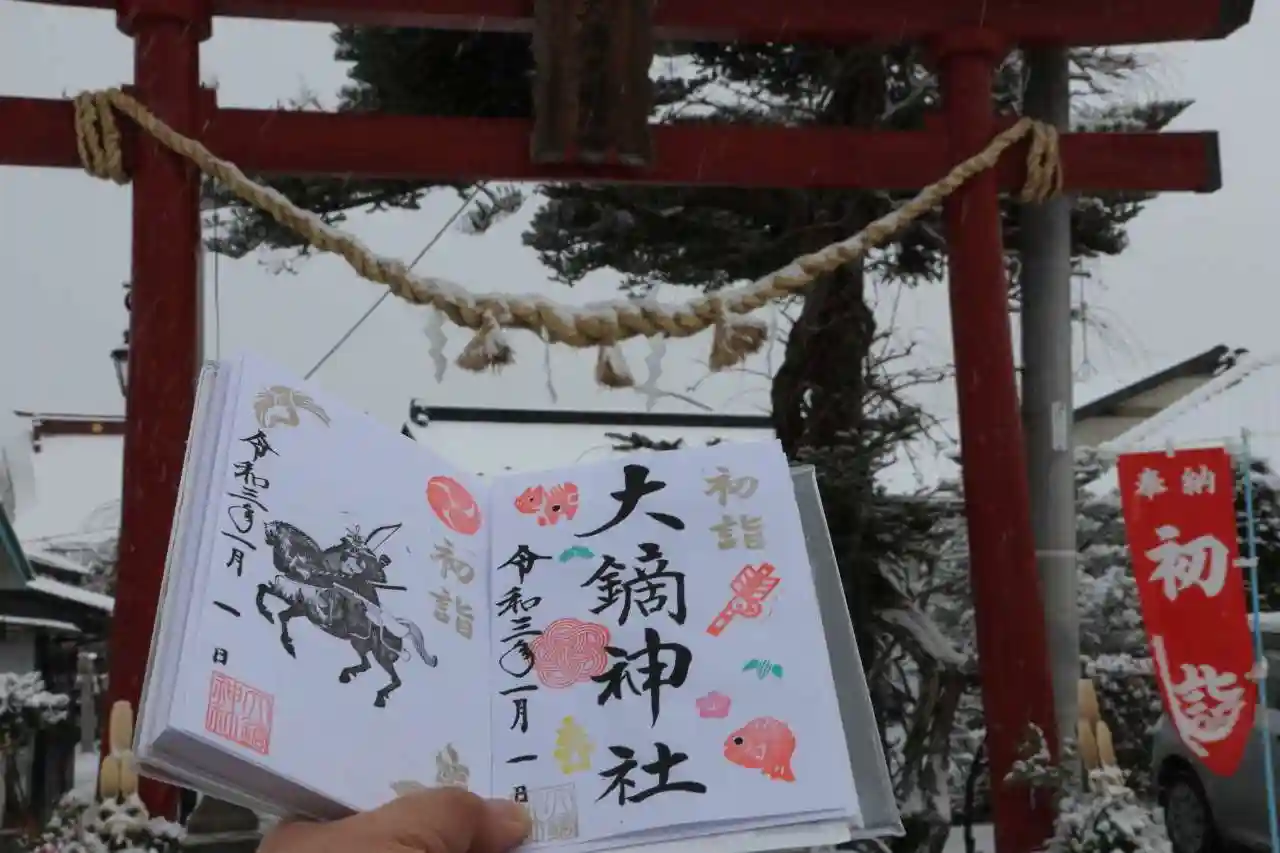 奉納
初詣
初詣
大鏑神社
令和三年一月一日
初詣
令和三年一月一日
大鏑
神社